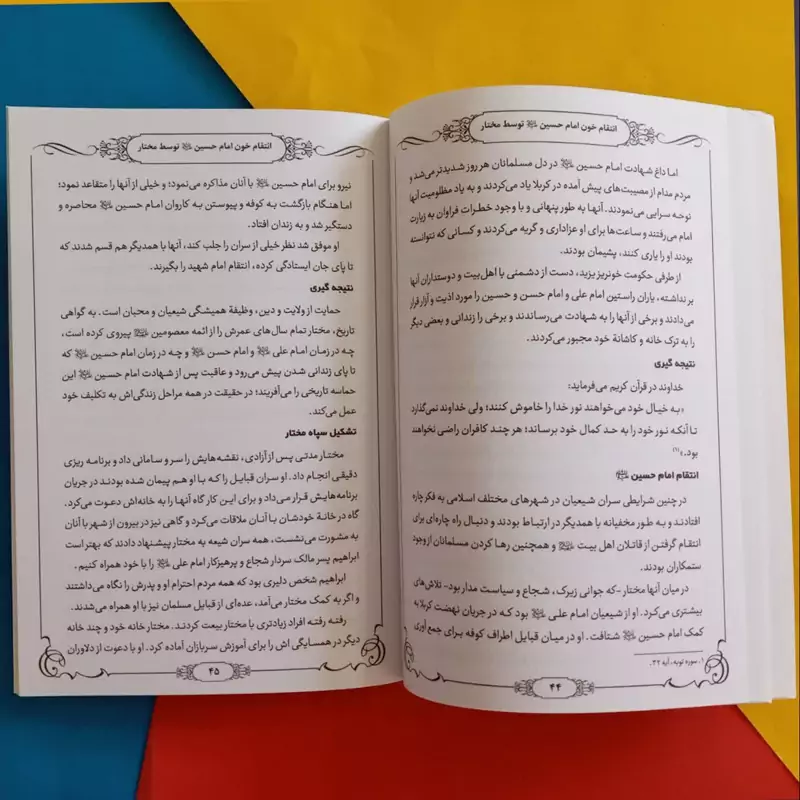 انتقام خون امام حسین ﷺ توسط مختار
اما داغ شهادت امام حسین ﷺ در دل مسلمانان هر روز شدیدتر می‌شد و
مردم مدام از مصیبت‌های پیش آمده در کربلا یاد می‌کردند و به یاد مظلومیت آنها
نوحه سرایی می‌نمودند. آنها به طور پنهانی و با وجود خطرات فراوان به زیارت
امام می‌رفتند و ساعت‌ها برای او عزاداری و گریه می‌کردند و کسانی که نتوانسته
بودند او را یاری کنند، پشیمان بودند.
از طرفی حکومت خونریز یزید، دست از دشمنی با اهل‌بیت و دوستداران آنها
بر نداشته، یاران راستین امام علی و امام حسن و حسین را مورد اذیت و آزار قرار
می‌دادند و برخی از آنها را به شهادت می‌رساندند و برخی را زندانی و بعضی دیگر
را به ترک خانه و کاشانهٔ خود مجبور می‌کردند.
نتیجه گیری
خداوند در قرآن کریم می‌فرماید:
«به خیال خود می‌خواهند نور خدا را خاموش کنند؛ ولی خداوند نمی‌گذارد
تا آنکه نور خود را به حد کمال خود برساند؛ هر چند کافران راضی نخواهند
بود.»(۱)
انتقام امام حسین ﷺ
در چنین شرایطی سران شیعیان در شهرهای مختلف اسلامی به فکر چاره
افتادند و به طور مخفیانه با همدیگر در ارتباط بودند و دنبال راه چاره‌ای برای
انتقام گرفتن از قاتلان اهل بیت ﷺ و همچنین رها کردن مسلمانان از وجود
ستمکاران بودند.
در میان آنها مختار -که جوانی زیرک، شجاع و سیاست مدار بود- تلاش‌های
بیشتری می‌کرد. او از شیعیان امام علی ﷺ بود که در جریان نهضت کربلا به
کمک امام حسین ﷺ شتافت. او در میان قبایل اطراف کوفه برای جمع آوری
۱. سوره توبه، آیه ۳۲.
۴۴
انتقام خون امام حسین ﷺ توسط مختار
نیرو برای امام حسین ﷺ با آنان مذاکره می‌نمود؛ و خیلی از آنها را متقاعد نمود؛
اما هنگام بازگشت به کوفه و پیوستن به کاروان امام حسین ﷺ محاصره و
دستگیر شد و به زندان افتاد.
او موفق شد نظر خیلی از سران را جلب کند، آنها با همدیگر هم قسم شدند که
تا پای جان ایستادگی کرده، انتقام امام شهید را بگیرند.
نتیجه گیری
حمایت از ولایت و دین، وظیفهٔ همیشگی شیعیان و محبان است. به گواهی
تاریخ، مختار تمام سال‌های عمرش را از ائمه معصومین ﷺ پیروی کرده است،
چه در زمان امام علی ﷺ و امام حسن ﷺ و چه در زمان امام حسین ﷺ که
تا پای زندانی شدن پیش می‌رود و عاقبت پس از شهادت امام حسین ﷺ این
حماسه تاریخی را می‌آفریند؛ در حقیقت در همه مراحل زندگی‌اش به تکلیف خود
عمل می‌کند.
تشکیل سپاه مختار
مختار مدتی پس از آزادی، نقشه هایش را سر و سامانی داد و برنامه ریزی
دقیقی انجام داد. او سران قبایل را که با او هم پیمان شده بودند در جریان
برنامه‌هایش قرار می‌داد و برای این کار گاه آنها را به خانه‌اش دعوت می‌کرد.
گاه در خانهٔ خودشان با آنان ملاقات می‌کرد و گاهی نیز در بیرون از شهر با آنان
به مشورت می‌نشست، همه سران شیعه به مختار پیشنهاد دادند که بهتر است
ابراهیم پسر مالک سردار شجاع و پرهیزکار امام علی ﷺ را با خود همراه کنیم.
ابراهیم شخص دلیری بود که همه مردم احترام او و پدرش را نگاه می‌داشتند
و اگر به کمک مختار می‌آمد، عده‌ای از قبایل مسلمان نیز با او همراه می‌شدند.
رفته رفته افراد زیادتری با مختار بیعت کردند. مختار خانه خود و چند خانه
دیگر در همسایگی اش را برای آموزش سربازان آماده کرد. او با دعوت از دلاوران
۴۵